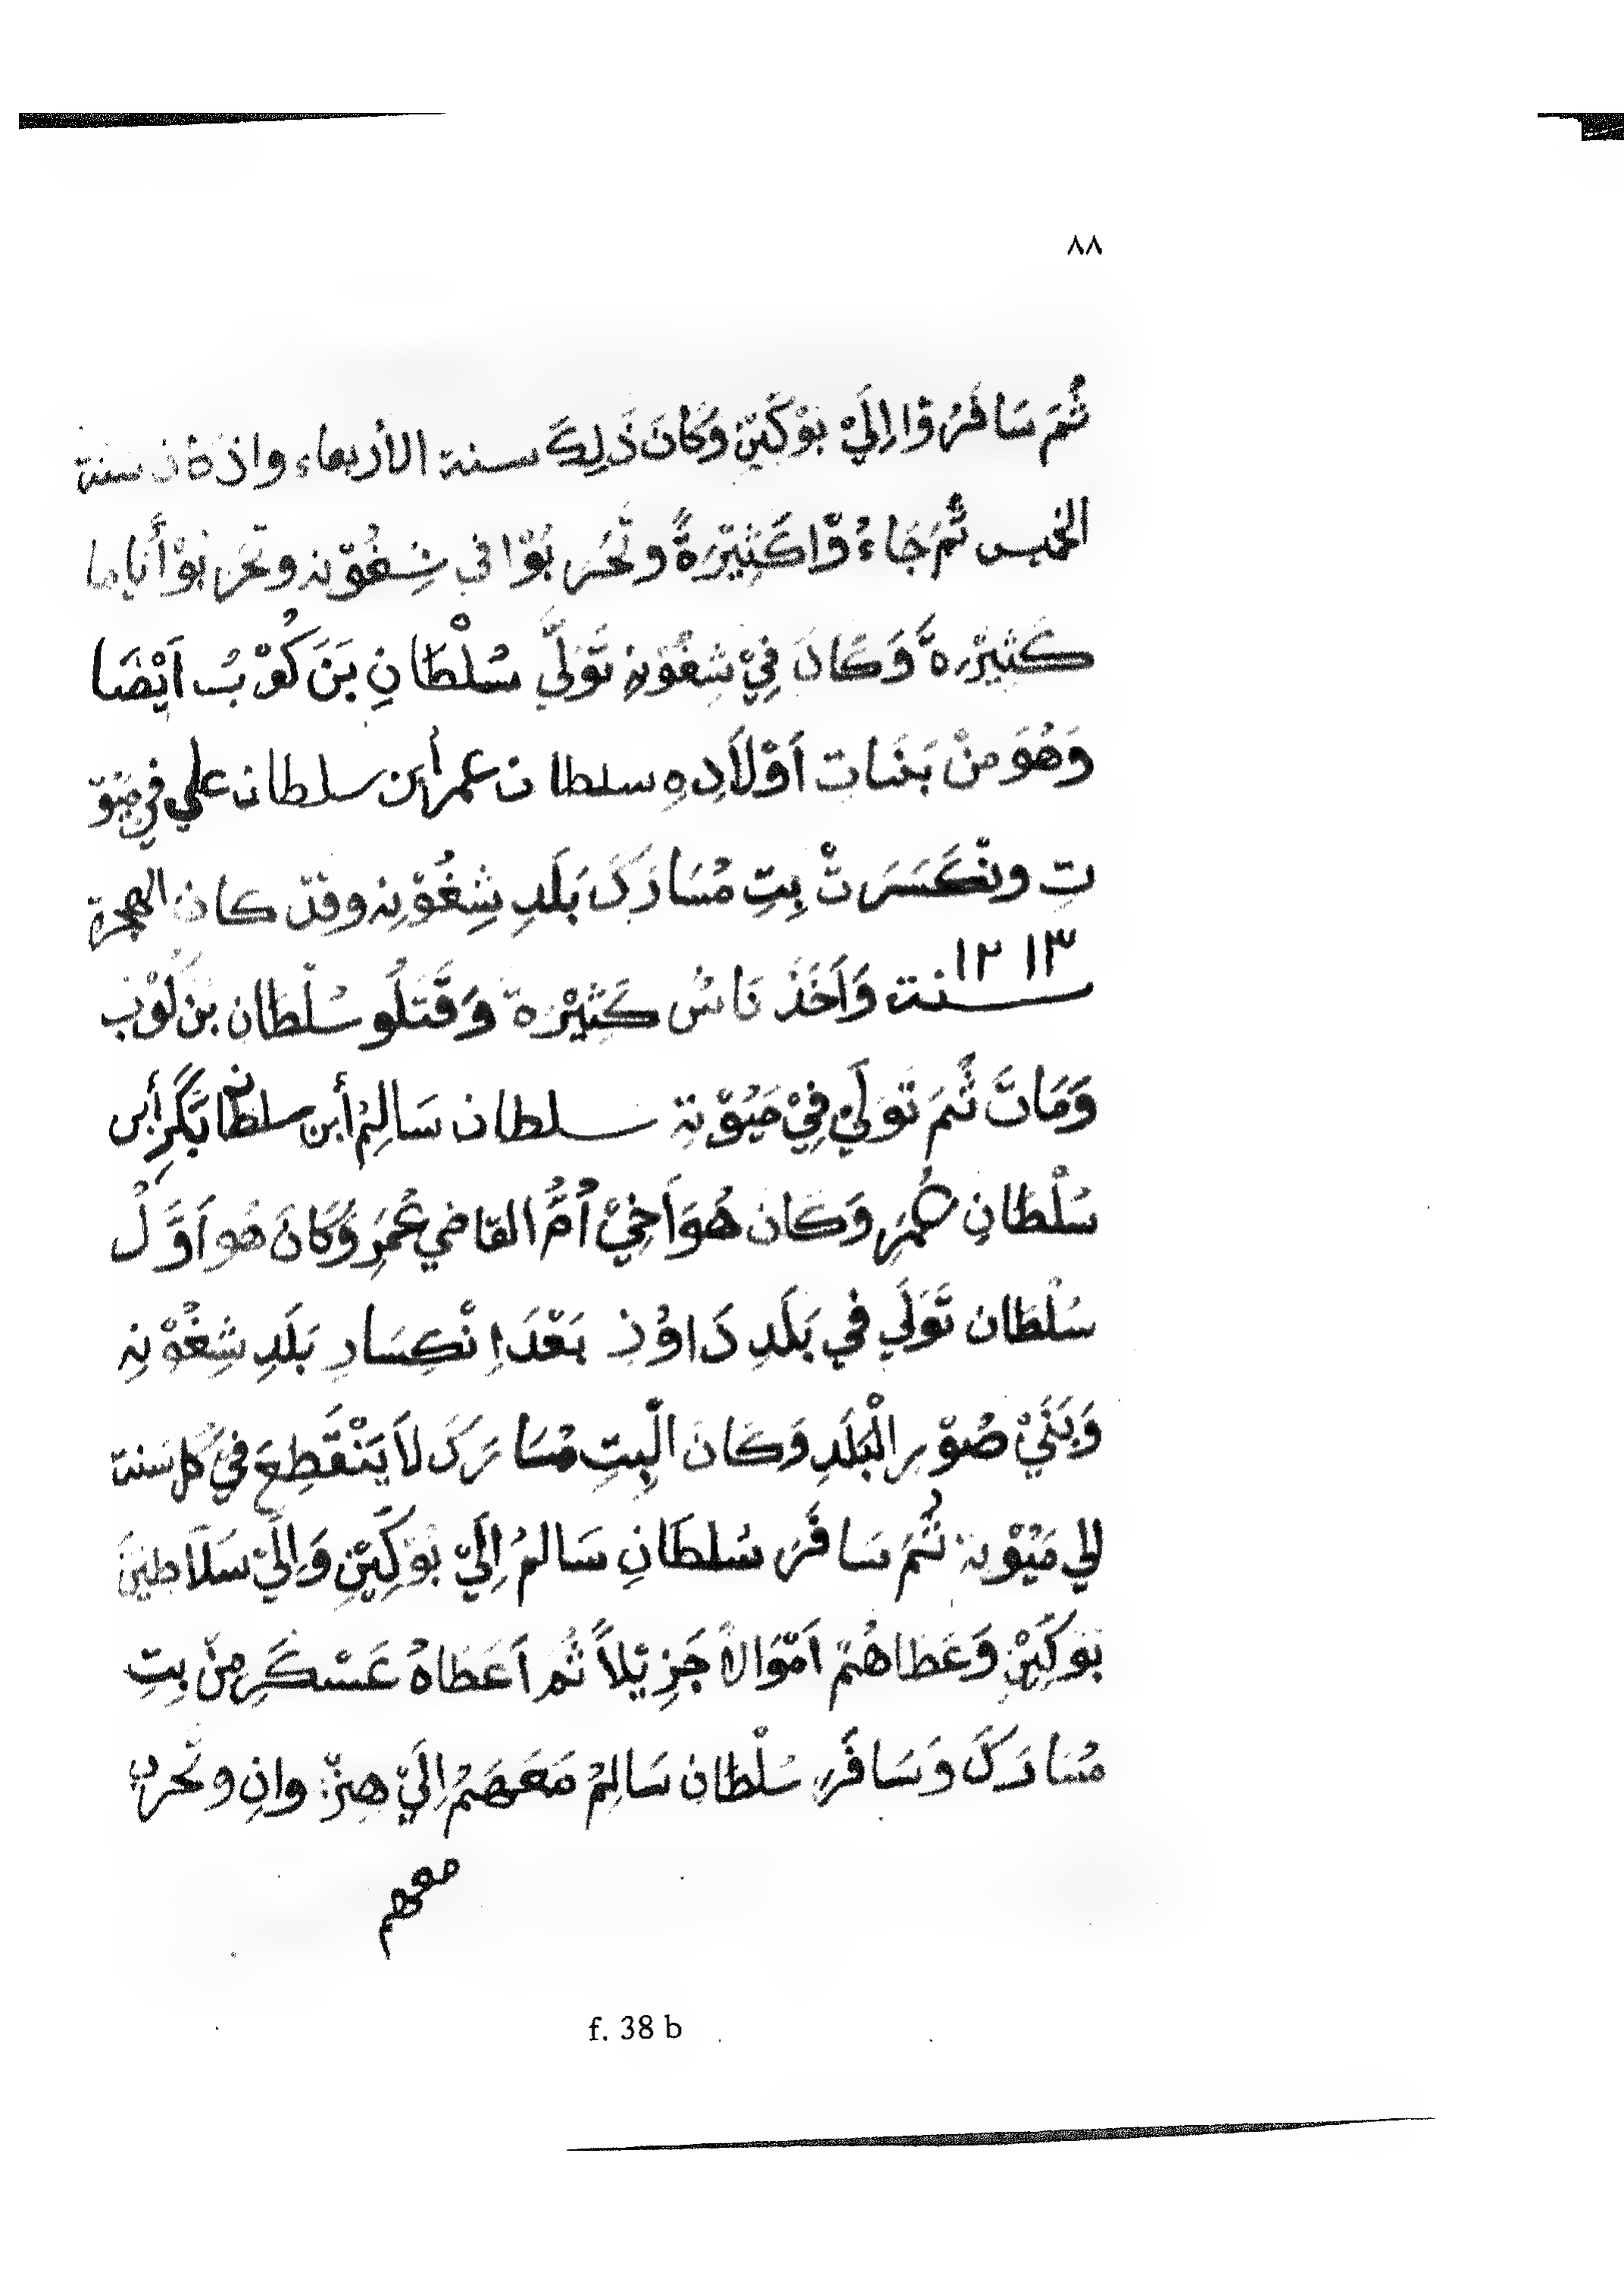 ٨٨
ثُمَ سَافَرُوْا اِلَيْ بُوْكَيْنِ وَكَانَ ذَلِكَ سنة الأربعاء واذكان سنة
الخميس ثُمَ جَاءُوْا كَثِيْرَةً وتَحُر بُوْا في شِغُوْنِه وتَحَر بُوْا أَيَاما
كَثِيْرَةً وَكَانَ فِيْ شِغُوْنِهِ تَوَلَّي سُلْطَانِ بَنَ كُوْبُ اَيْضَا
وَهُوَ مِنْ بَنَات اَوْلَادِهِ سلطان عمر أبن سلطان علي في مِيُوْ
تِ ونْكَسَرَتْ بِتِ مْسَارَكَ بَلَدِ شِغُوْنِه وقدْ كان الهجرة
١٢١٣
سنت وَاَخَذَ نَاسُ كَثِيْرَة وَقَتَلُو سُلْطَان بَنَ كُوْب
وَمَاتَ ثُمَ تَوَلَيْ فِيْ مَيُوْتِة سلطان سَالِمْ أبن سلطان بَكَرِ أبن
سُلْطَانِ عُمَرِ وَكَانَ هُوَ اَخِيْ اُمُّ القَاضي عُمَرِ وَكَانَ هُو اَوَّلْ
سُلْطَان تَوَلَي في بَلَدِ دَاوُنِ بَعْدَ اِنْكِسَارِ بَلَدِ شِغُوْنِه
وَبَنَيْ صُوْرِ الْبَلَدِ وَكَانَ الْبِتِ مْسَارَكَ لَا يَنْقَطِعَ فيْ كل سَنة
اِلي مَيُوْتة ثُمَ سَافَرَ سُلطَانِ سَالمُ اِلَيْ بُوْكَيْنِ وَاِلَيْ سَلَاطِيْنَ
بُوْكَيْنِ وَعَطَاهُمْ اَمْوَالاً جَزِيْلاً ثُم اَعَطَاهُ عَسْكَرِ مِنْ بِتِ
مْسَارَكَ وَسَافَرِ سُلْطَان سَالِمُ مَعَهَمْ اِلَيْ هِنْزُوانِ وتَحرب
معهم
f. 38 b